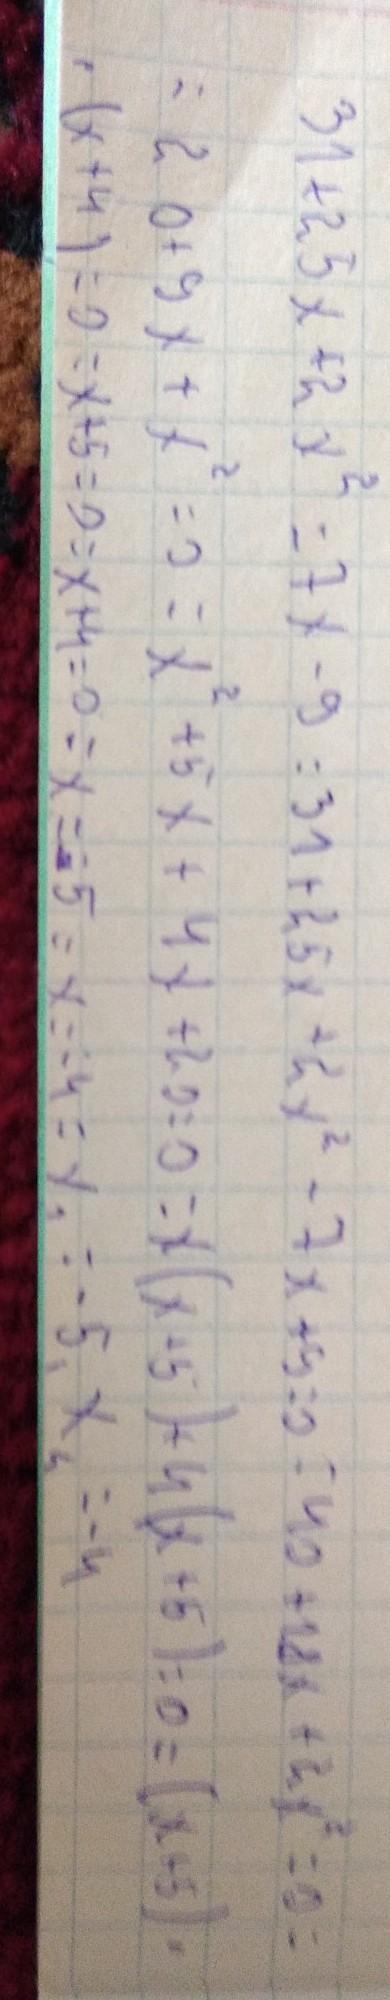 31+25x+2x² = 7x-9 = 31+25x+2x²-7x+9=0 = 40+18x+2x²=0 =
= 20+9x+x² = 0 = x²+5x+4x+20=0 = x(x+5)+4(x+5)=0 = (x+5)·
·(x+4)=0 = x+5=0 = x+4=0 = x=-5 = x=-4 = x₁ = -5, x₂ = -4